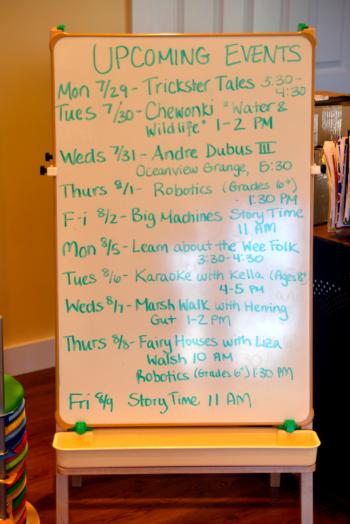 UPCOMING EVENTS
Mon 7/29 - Trickster Tales 3:30-
4:30
Tues 7/30 - Chewonki "Water &
Wildlife" 1-2 PM
Weds 7/31 - Andre Dubus III
Oceanview Grange, 6:30
Thurs 8/1 - Robotics (Grades 6+)
1:30 PM
Fri 8/2 - Big Machines Story Time
11 AM
Mon 8/5 - Learn about the Wee Folk
3:30-4:30
Tues 8/6 - Karaoke with Kella (Ages 8+)
4-5 PM
Weds 8/7 - Marsh Walk with Herring
Gut 1-2 PM
Thurs 8/8 - Fairy Houses with Liza
Walsh 10 AM
Robotics (Grades 6+) 1:30 PM
Fri 8/9 Story Time 11 AM